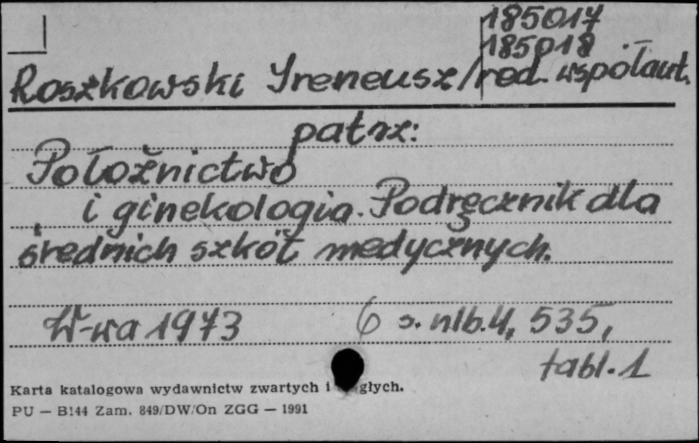 185017
185018
Roszkowski Ireneusz/red. współaut.
patrz:
Położnictwo
i ginekologia. Podręcznik dla
średnich szkół medycznych.
W-wa 1973 6 s. nlb. 4, 535,
tabl. 1
Karta katalogowa wydawnictw zwartych i głych.
PU — B144 Zam. 849/DW/On ZGG — 1991